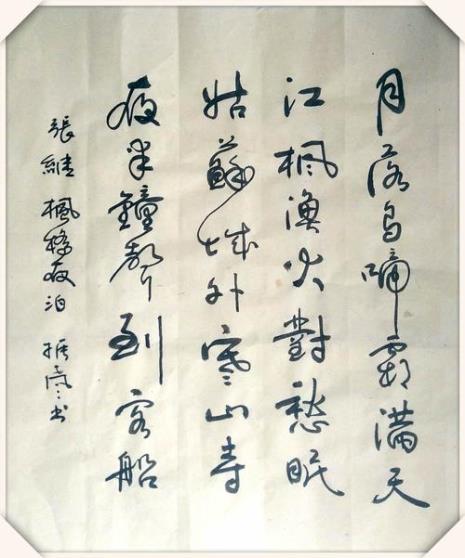 月落烏啼霜滿天
江楓漁火對愁眠
姑蘇城外寒山寺
夜半鐘聲到客船
張繼 楓橋夜泊 振嵐書